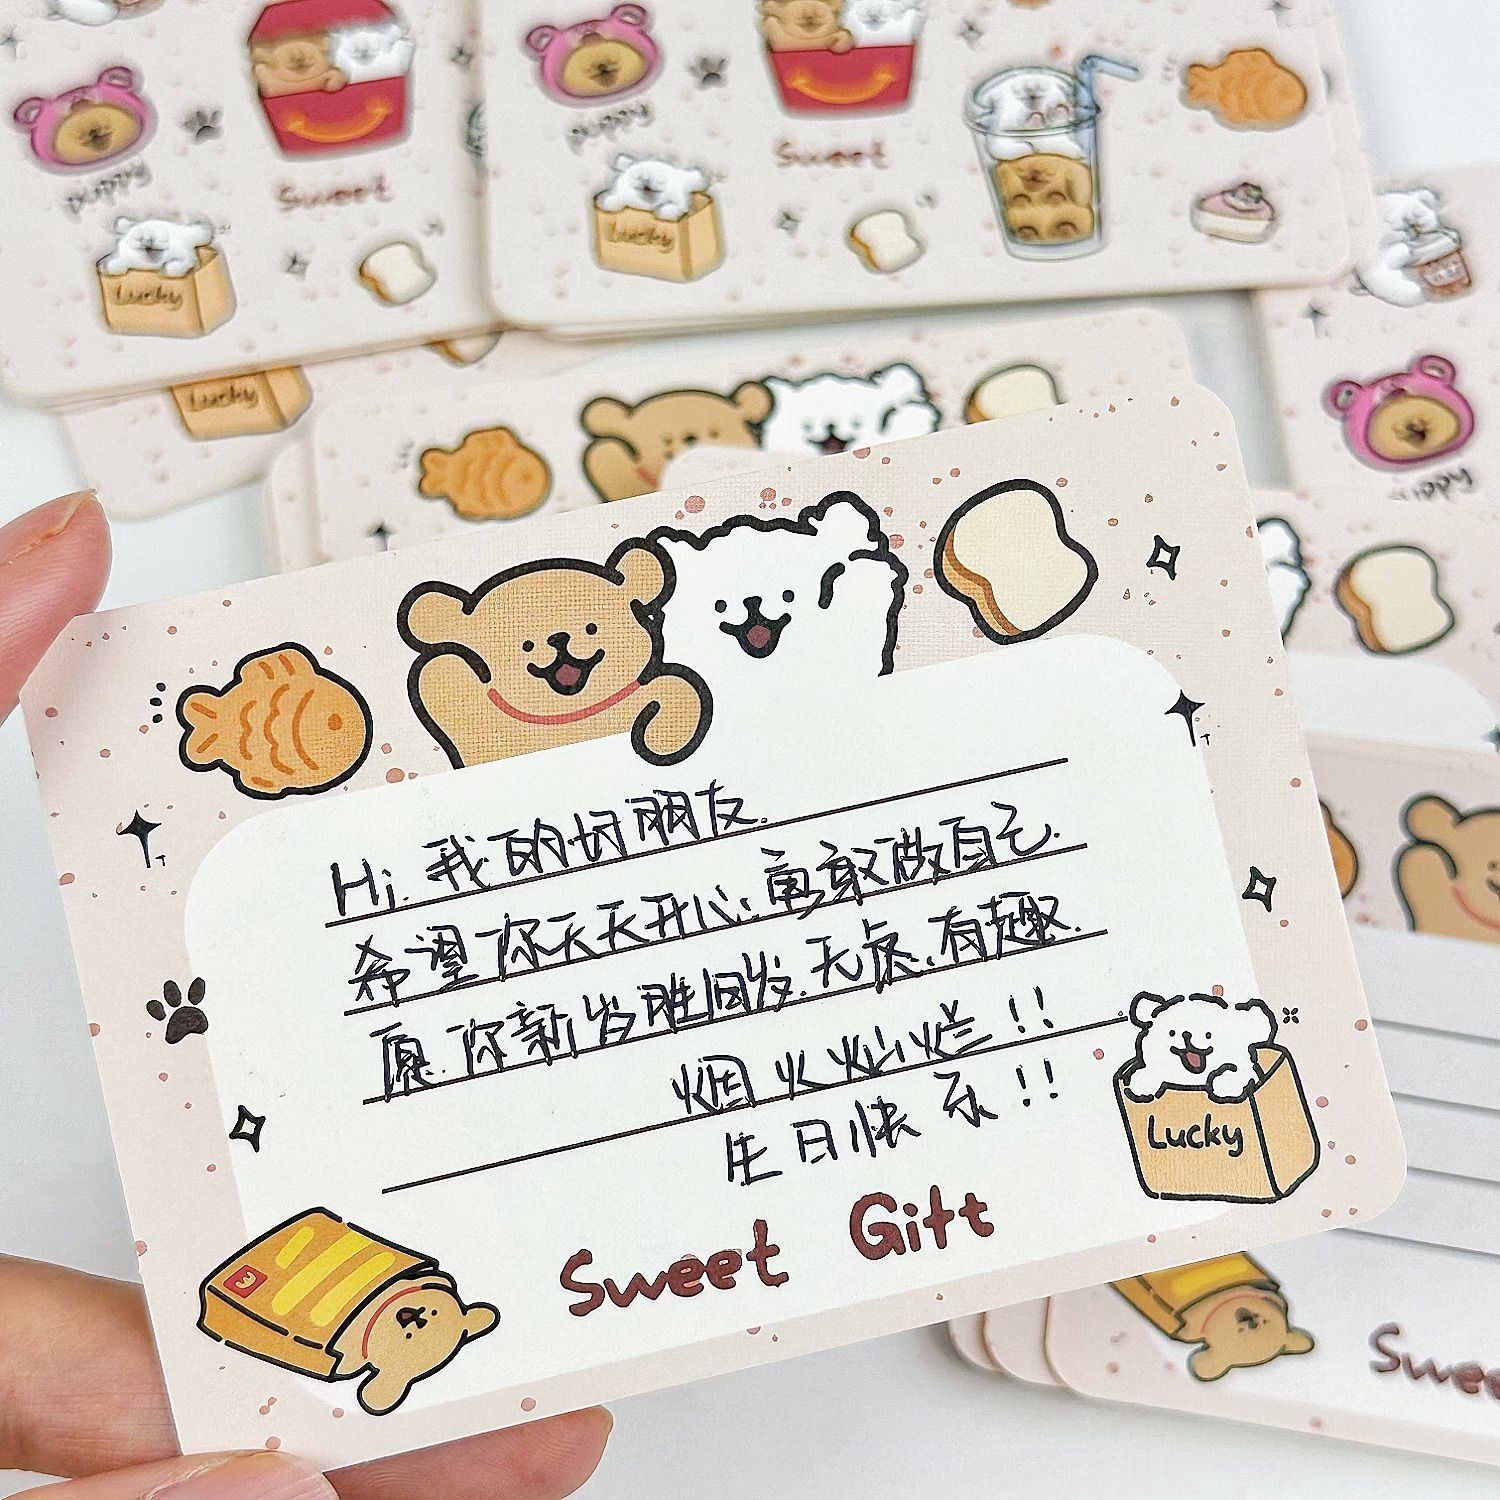 puppy
Sweet
Lucky
puppy
Sweet
Lucky
Lucky
Hi. 我的好朋友.
希望你天天开心.勇敢做自己.
愿.你新岁胜旧岁.无虑.有趣.
烟火灿烂!!
生日快乐!!
Lucky
Sweet Gift